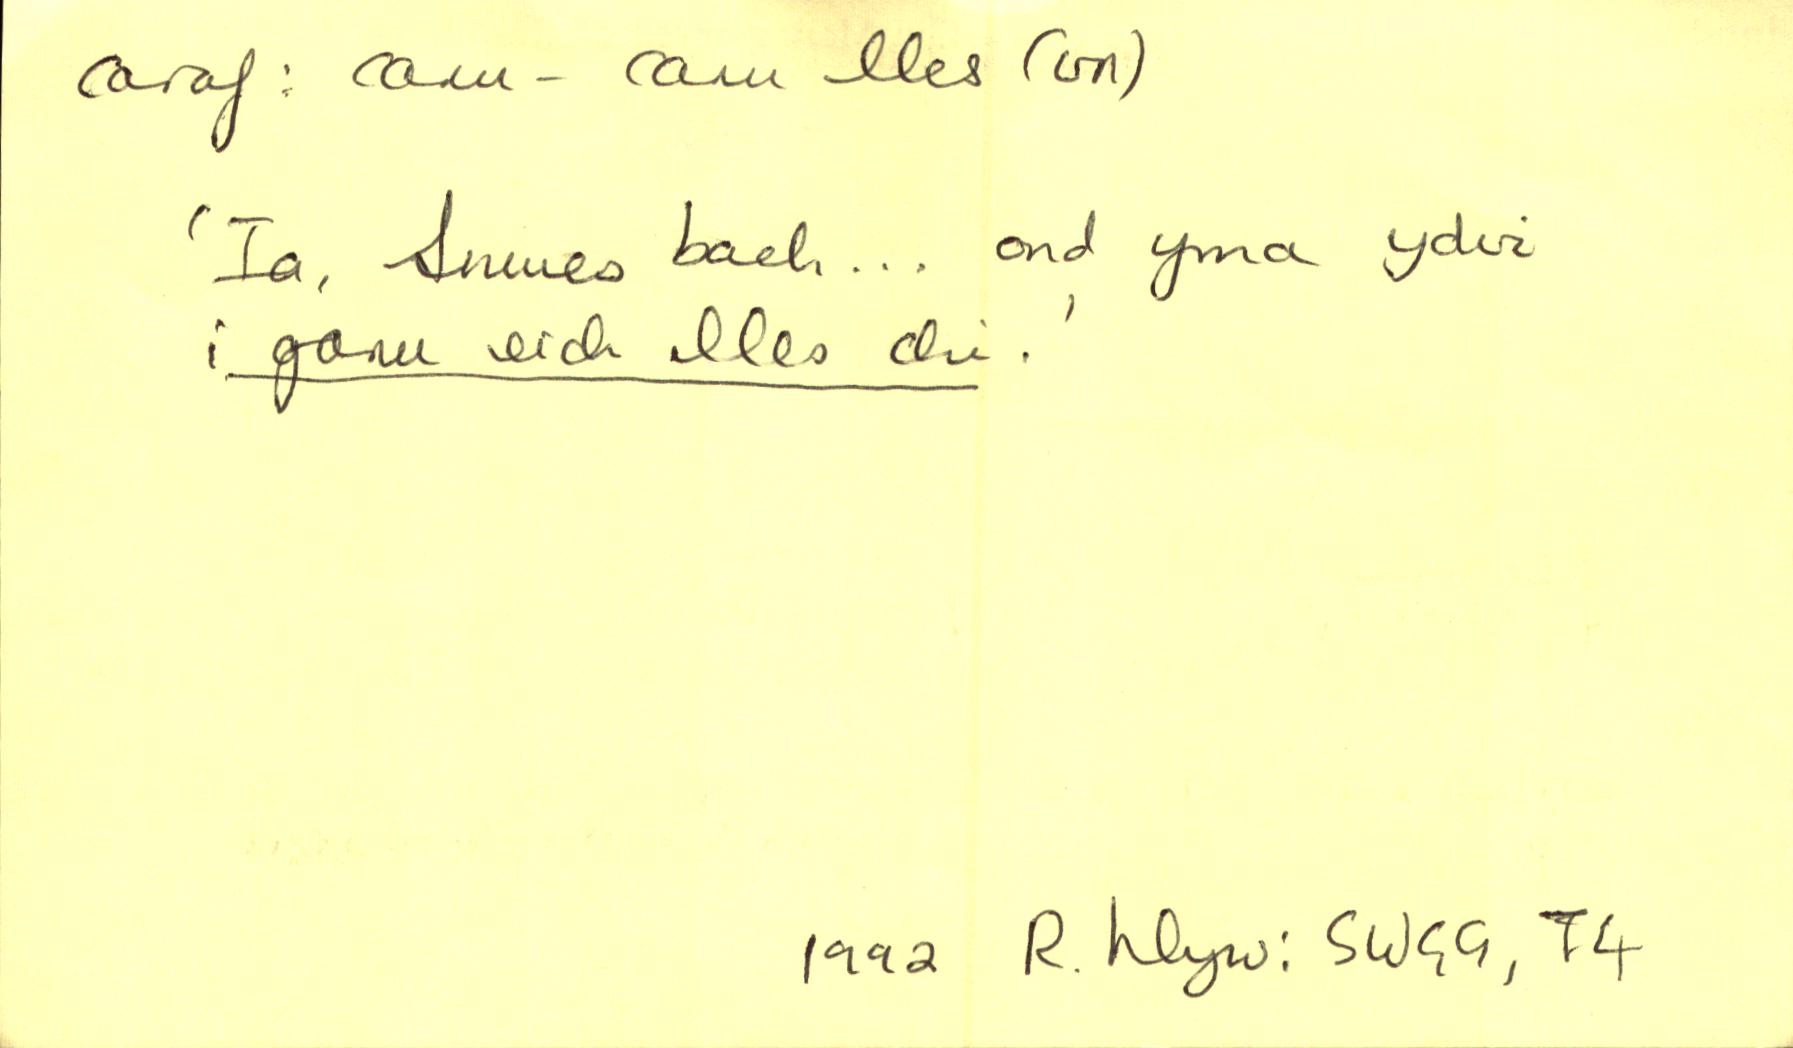 caraf: caru – caru lles (un)
'Ia, Anwes bach... ond yma ydwi
i garu eich lles chi.'
1992 R. Llyw: SWGG, 74